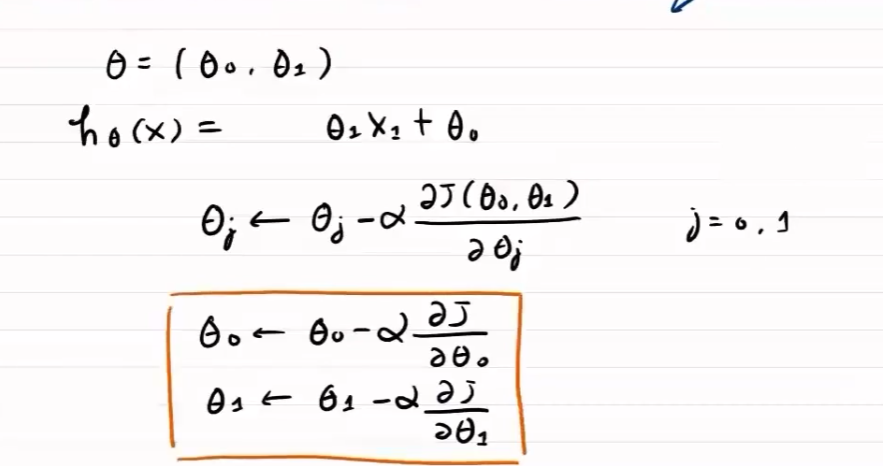 θ = (θ₀, θ₁)
h_θ(x) = θ₁x₁ + θ₀
θⱼ ← θⱼ - α ∂J(θ₀, θ₁) / ∂θⱼ j = 0, 1
θ₀ ← θ₀ - α ∂J / ∂θ₀
θ₁ ← θ₁ - α ∂J / ∂θ₁